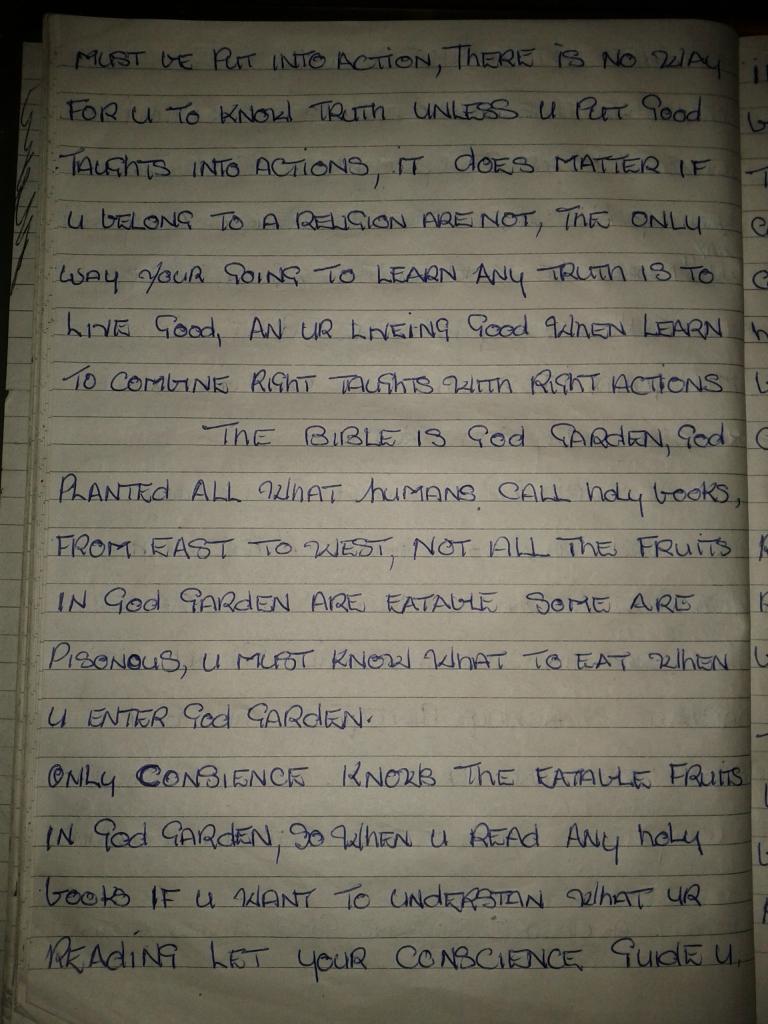 MUST BE PUT INTO ACTION, THERE IS NO WAY
FOR U TO KNOW TRUTH UNLESS U PUT GOOD
TAUGHTS INTO ACTIONS, IT DOES MATTER IF
U BELONG TO A RELIGION ARE NOT, THE ONLY
WAY YOUR GOING TO LEARN ANY TRUTH IS TO
LIVE GOOD, AN UR LIVEING GOOD WHEN LEARN
TO COMBINE RIGHT TAUGHTS WITH RIGHT ACTIONS
THE BIBLE IS GOD GARDEN, GOD
PLANTED ALL WHAT HUMANS CALL HOLY BOOKS,
FROM EAST TO WEST, NOT ALL THE FRUITS
IN GOD GARDEN ARE EATABLE SOME ARE
PISONOUS, U MUST KNOW WHAT TO EAT WHEN
U ENTER GOD GARDEN.
ONLY CONSIENCE KNOWS THE EATABLE FRUITS
IN GOD GARDEN, SO WHEN U READ ANY HOLY
BOOKS IF U WANT TO UNDERSTAN WHAT UR
READING LET YOUR CONSCIENCE GUIDE U.